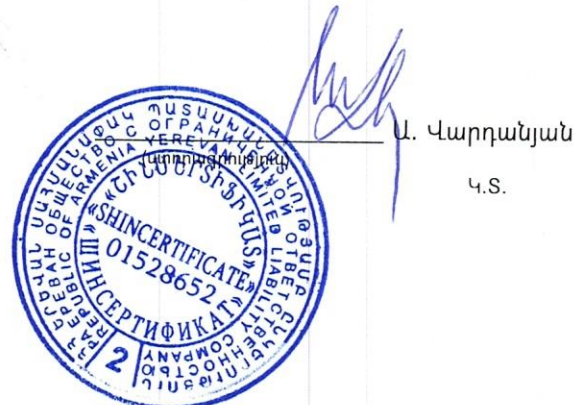 Ա. Վարդանյան
(ստորագրություն)
Կ.Տ.
ՀՀ ԵՐԵՎԱՆ ՍԱՀՄԱՆԱՓԱԿ ՊԱՏԱՍԽԱՆԱՏՎՈՒԹՅԱՄԲ ԸՆԿԵՐՈՒԹՅՈՒՆ
РА ЕРЕВАН ОБЩЕСТВО С ОГРАНИЧЕННОЙ ОТВЕТСТВЕННОСТЬЮ
REPUBLIC OF ARMENIA YEREVAN LIMITED LIABILITY COMPANY
«ՇԻՆՍԵՐՏԻՖԻԿԱՏ»
«SHINCERTIFICATE»
01528652
«ШИНСЕРТИФИКАТ»
2